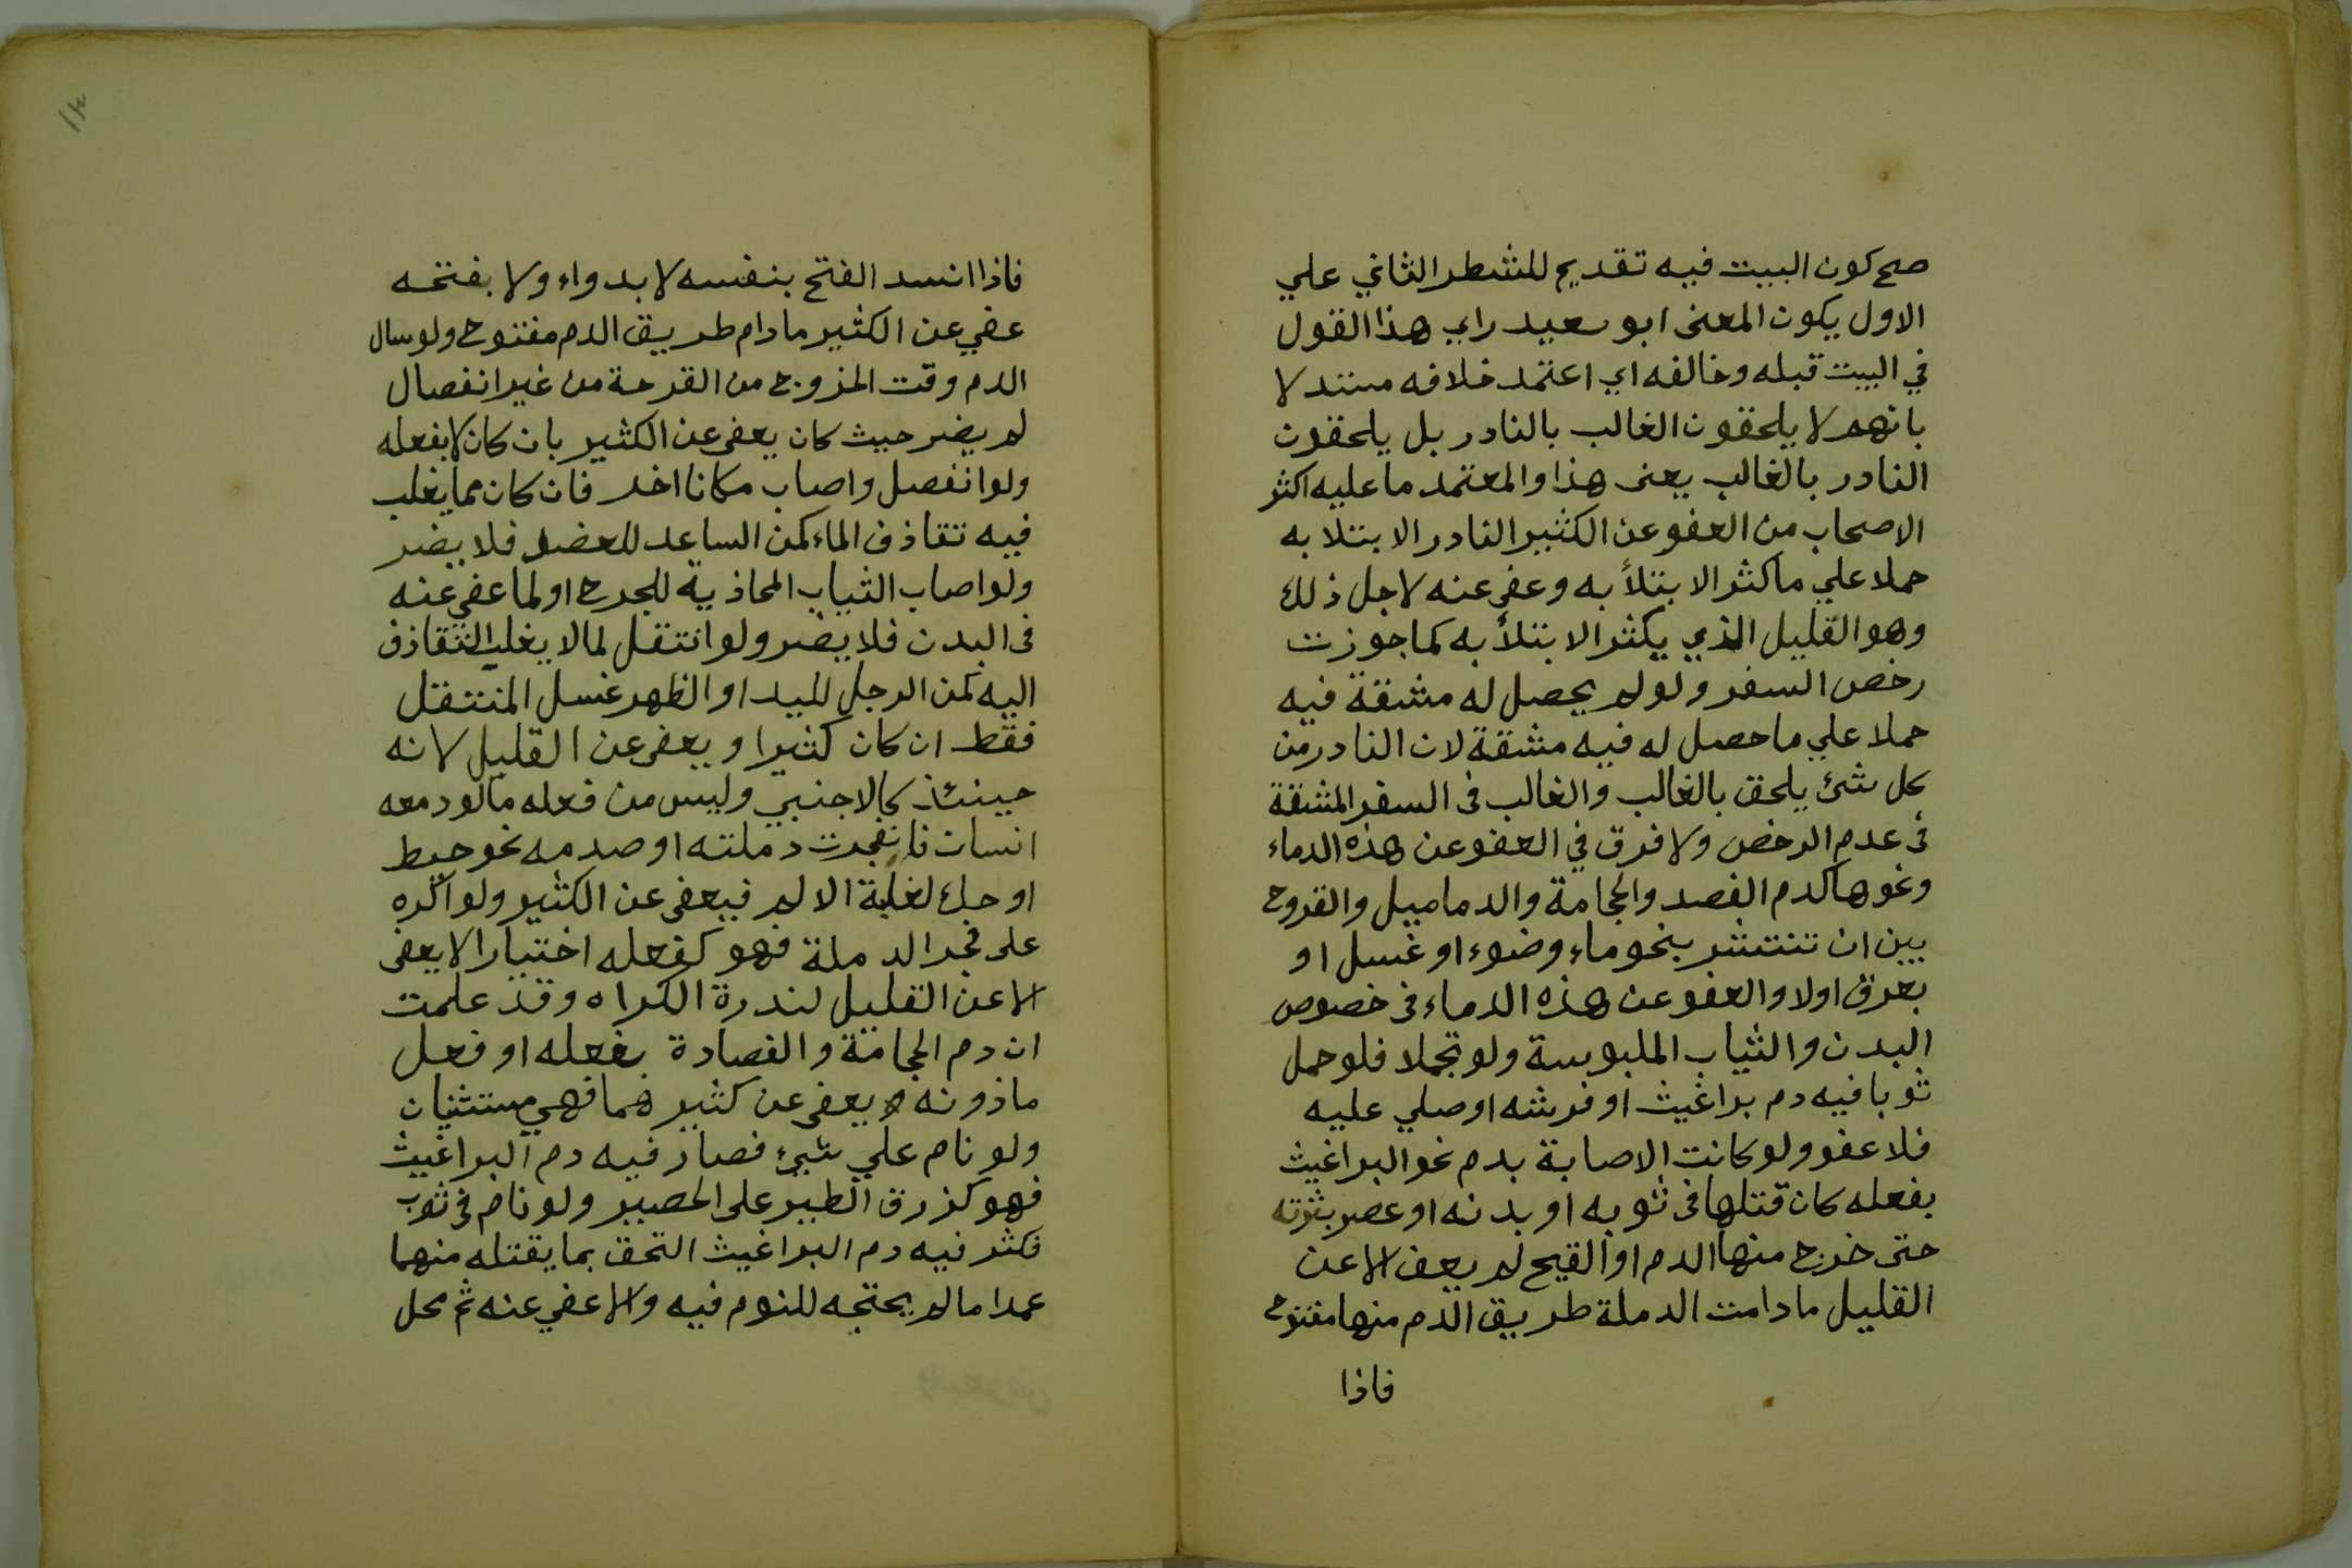 صح كون البيت فيه تقديم للشطر الثاني علي
الاول يكون المعنى ابو سعيد راي هذا القول
في البيت قبله وخالفه اي اعتمد خلافه مستدلا
بانهم لا يلحقون الغالب بالنادر بل يلحقون
النادر بالغالب يعنى هذا والمعتمد ما عليه اكثر
الاصحاب من العفو عن الكثير النادر الابتلا به
حملا علي ما كثر الابتلأ به وعفى عنه لاجل ذلك
وهو القليل الذي يكثر الابتلأ به كما جوزت
رخص السفر ولو لم يحصل له مشقة فيه
حملا علي ما حصل له فيه مشقة لان النادر من
كل شئ يلحق بالغالب والغالب فى السفر المشقة
في عدم الرخص ولا فرق في العفو عن هذه الدماء
ونحوها كدم الفصد والحجامة والدماميل والقروح
بين ان تنتشر بنحو ماء وضوء او غسل او
بعرق اولا والعفو عن هذه الدماء فى خصوص
البدن والثياب الملبوسة ولو تجملا فلو حمل
ثوبا فيه دم براغيث او فرشه او صلي عليه
فلا عفو ولو كانت الاصابة بدم نحو البراغيث
بفعله كان قتلها فى ثوبه او بدنه او عصر بثرته
حتى خرج منها الدم او القيح لم يعف الا عن
القليل ما دامت الدملة طريق الدم منها مفتوح
فاذا
فاذا انسد الفتح بنفسه لا بدواء ولا بفتحه
عفي عن الكثير ما دام طريق الدم مفتوح ولو سال
الدم وقت الخروج من القرحة من غير انفصال
لم يضر حيث كان يعفى عن الكثير بان كان لا بفعله
ولو انفصل واصاب مكانا اخر فان كان مما يغلب
فيه تقاذف الماء كمن الساعد للعضد فلا يضر
ولو اصاب الثياب المحاذية للجرح او لما عفي عنه
فى البدن فلا يضر ولو انتقل لما لا يغلب التقاذف
اليه كمن الرجل لليد او الظهر غسل المنتقل
فقط ان كان كثيرا ويعفى عن القليل لانه
حينئذ كالاجنبي وليس من فعله ما لو دمعه
انسان فانفجرت دملته او صدمه نحو حيط
او حك لغلبة الالم فيعفى عن الكثير ولو اكره
على فجر الدملة فهو كفعله اختيارا لا يعفى
الا عن القليل لندرة الاكراه وقد علمت
ان دم الحجامة والفصادة بفعله او فعل
ماذونه يعفى عن كثيرهما فهي مستثنيان
ولو نام علي شيئ فصار فيه دم البراغيث
فهو كذرق الطير على الحصير ولو نام فى ثوب
فكثر فيه دم البراغيث التحق بما يقتله منها
عمدا ما لم يحتجه للنوم فيه والا عفي عنه ثم محل